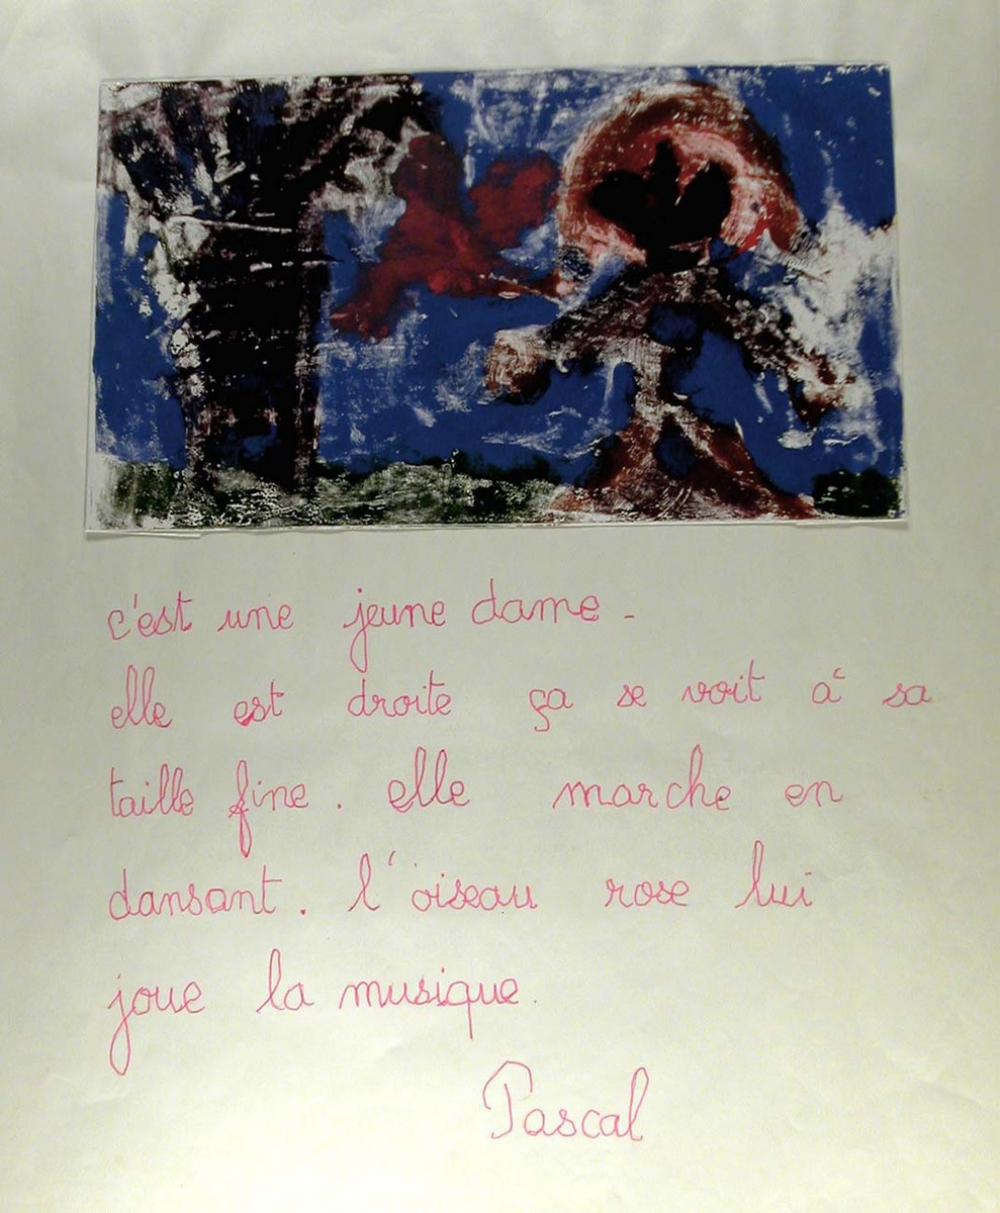 c'est une jeune dame -
elle est droite ça se voit à sa
taille fine. elle marche en
dansant. l'oiseau rose lui
joue la musique.
Pascal